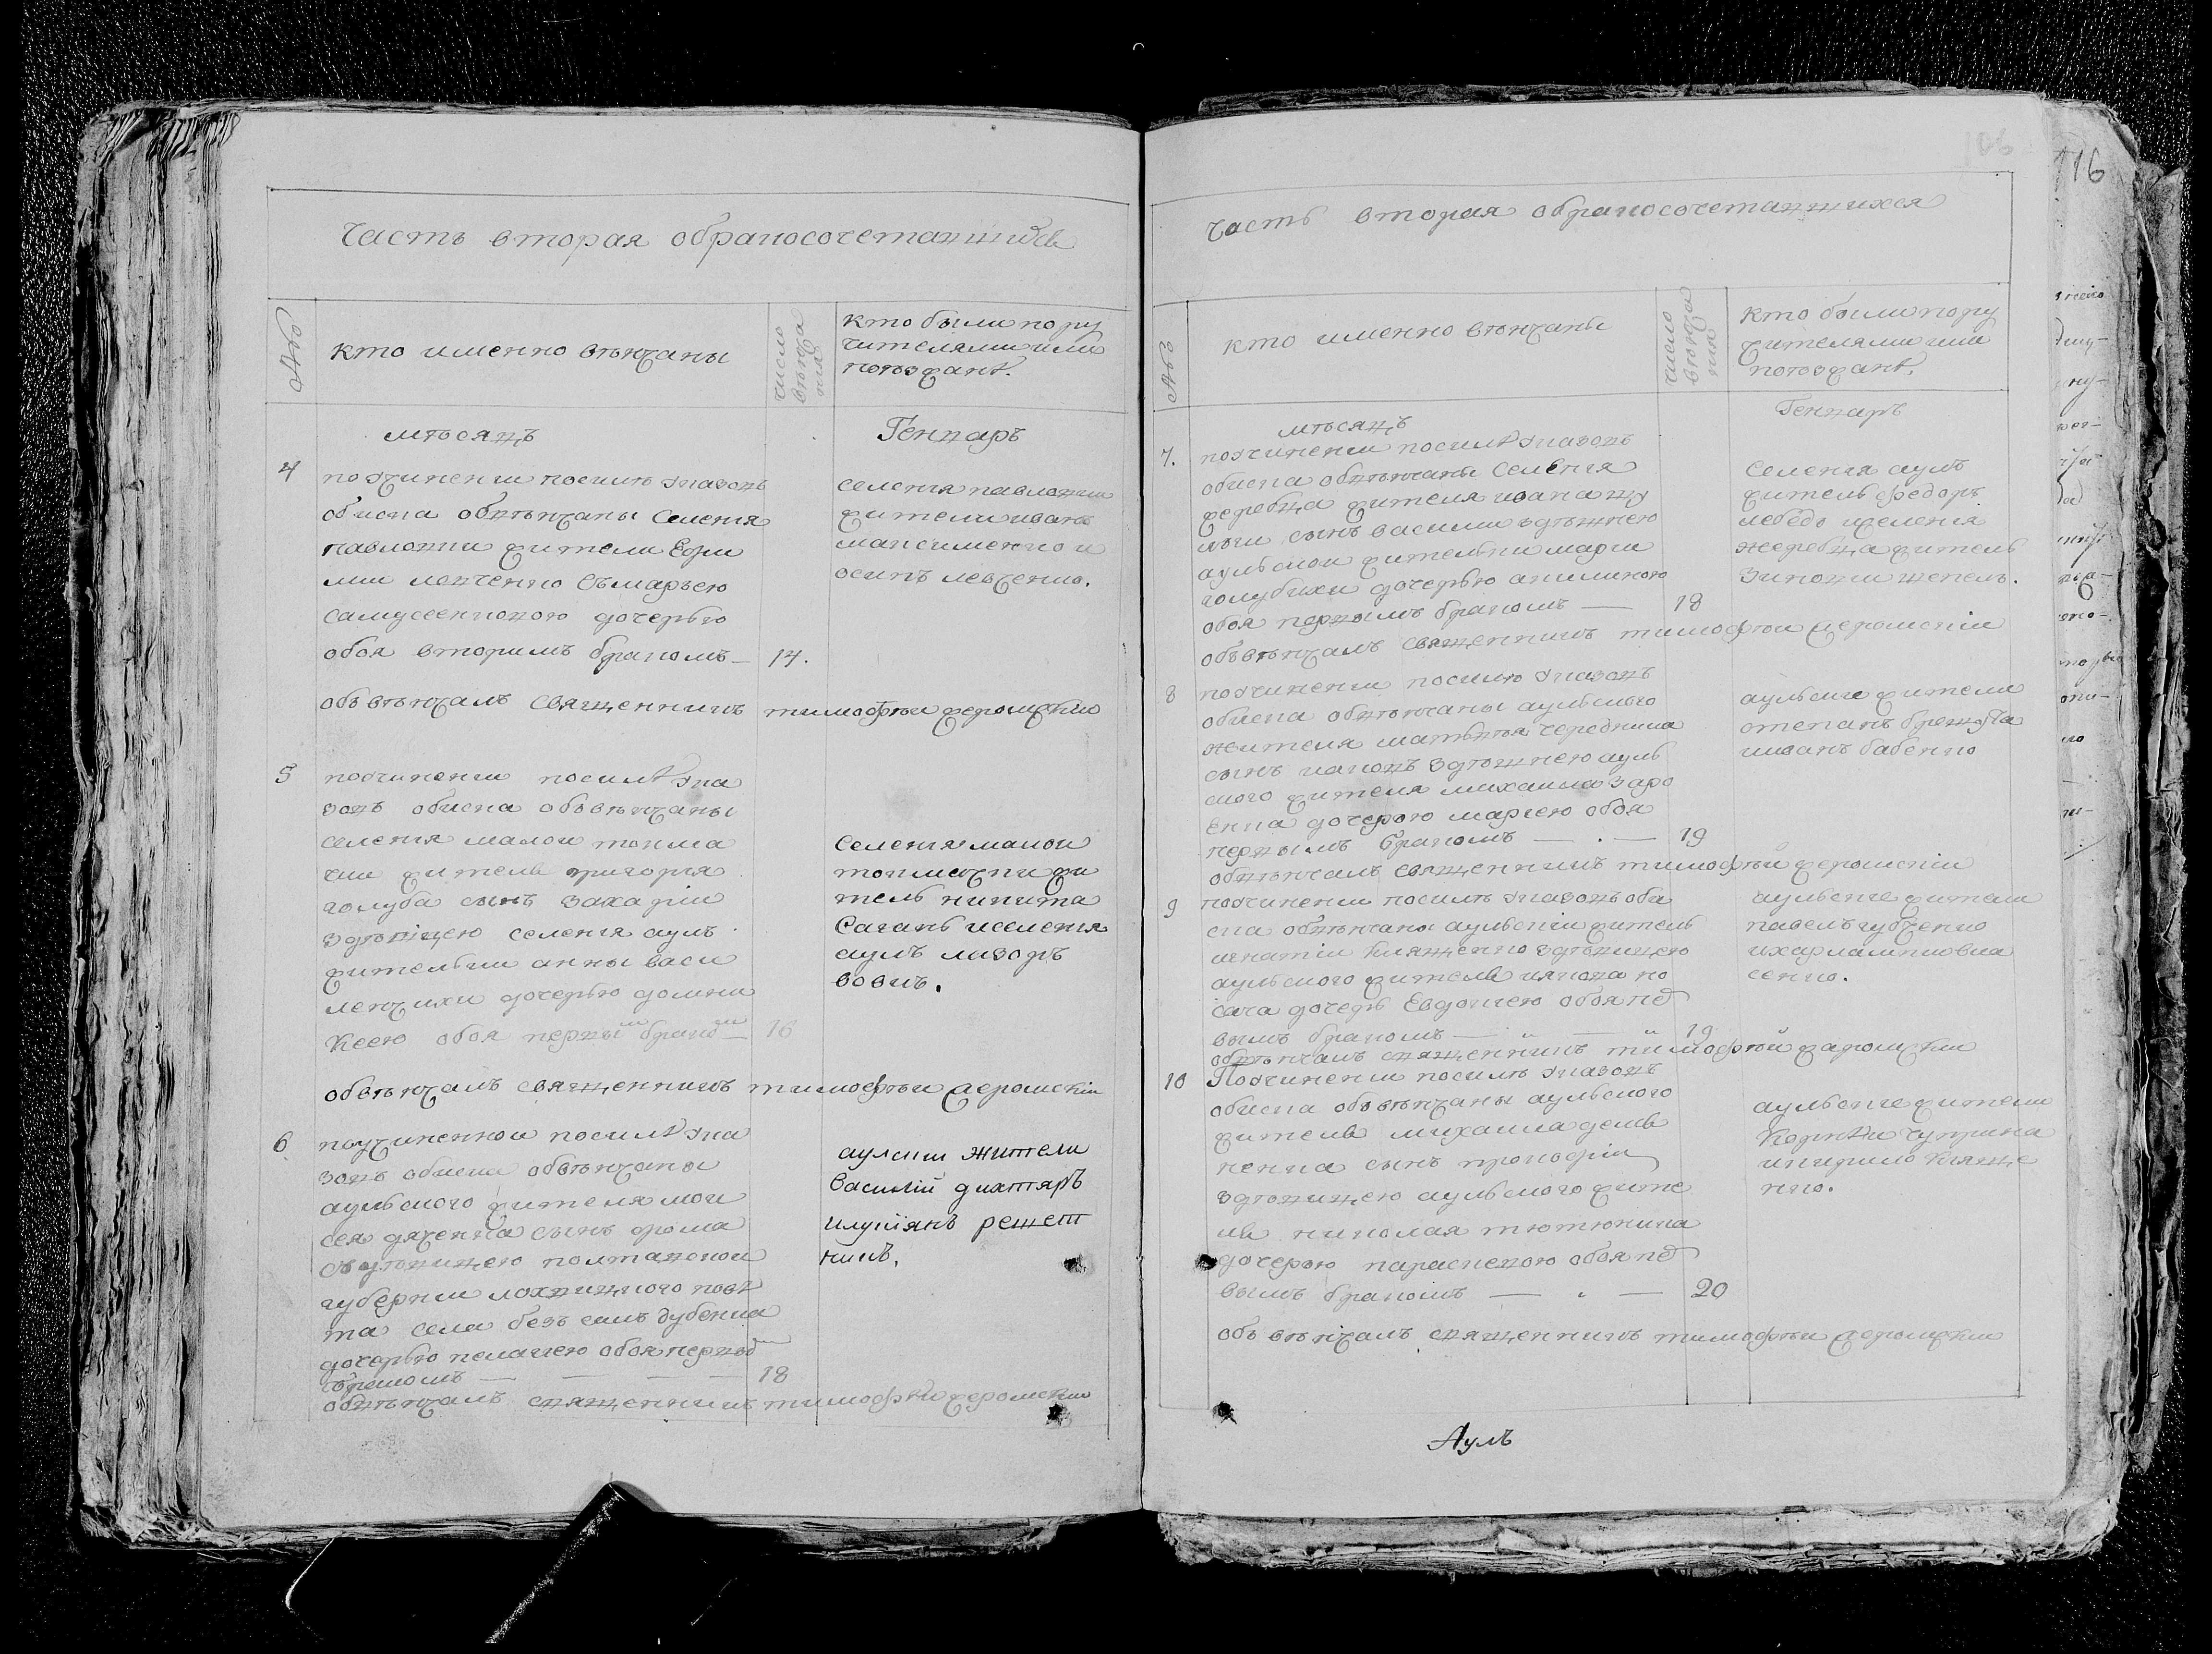 Часть вторая обракосочетавшихся
кто именно вѣнчаны
число вѣнчанія
кто были пору
чителями или
потозжанѣ.
мѣсяцъ
Генваръ
4
по учинении посилѣ указовъ
обиска обвѣнчаны селенія
павловки жители Ефи
мій левченко съ марьею
самусеенковою дочерью
обоя вторимъ бракомъ — 14.
селенія павловки
жители иванъ
максименко и
осипъ левченко.
объвѣнчалъ священникъ тимофѣй жеромскій
5
поучинении посилѣ ука
зовъ обиска объвѣнчаны
селенія малой токма
чки житель григорія
голуба сынъ захарій
здѣвицею селенія аулъ
жительки анны васи
ленчихи дочерью домни
кеею обоя первымъ бракомъ — 16
селенія малой
токмачки жи
тель никита
саганъ иселенія
аулъ лазоръ
вовкъ.
обвѣнчалъ священникъ тимофѣй жеромскій
6
поучиненной посилѣ ука
зовъ обиска обвѣнчаны
аульского жителя мои
сея дяченка сынъ фома
съдѣвицею полтавской
губерніи лохвицкого повѣ
та села безъ салъ дубенка
дочерью пелагеею обоя первымъ
бракомъ — — — — 18
аулски жители
василій дихтяръ
илукіянъ решет
никъ.
обвѣнчалъ священникъ тимофѣй жеромскій
116
часть вторая обракосочетавшихся
кто именно вѣнчаны
число вѣнчанія
кто были пору
чителями или
потозжанѣ.
мѣсяцъ
Генваръ
7.
поучинении посилѣ указовъ
обиска обвѣнчаны селенія
жеребца жителя ивана
сынъ василий здѣвкею
аульской жительки марии
голубихи дочерью акилиною
обоя первымъ бракомъ — 18
селенія аулъ
житель федоръ
лебедь иселенія
жеребца житель
зиновій шепель.
объвѣнчалъ священникъ тимофѣй жеромскій
8
поучинении посилѣ указовъ
обиска обвѣнчаны аульского
жителя матвѣя чередника
сынъ иаковъ здѣвкею ауль
ского жителя михаила
дочерою мариею обоя
первымъ бракомъ — . — 19
аульскіе жители
степанъ
иванъ бабенко
обвѣнчалъ священникъ тимофѣй жеромскій
9
поучинении посилѣ указовъ оби
ска обвѣнчаны аульскій житель
игнатій княженко здѣвицею
аульского жителя иякова но
сача дочеръ Евдокиею обоя пер
вымъ бракомъ — „ — „ 19
аульскіе жители
павелъ губченко
ихарлампий
сенко.
обвѣнчалъ священникъ тимофѣй жеромскій
10
Поучинении посилѣ указовъ
обиска объвѣнчаны аульского
жителя михаила
ненка сынъ прокофій
здѣвицею аульского жите
ля николая тютюника
дочерою параскевою обоя пер
вымъ бракомъ — „ — 20
аульскіе жители
корнѣй чуприна
икирило княже
нко.
объвѣнчалъ священникъ тимофѣй жеромскій
Аулъ